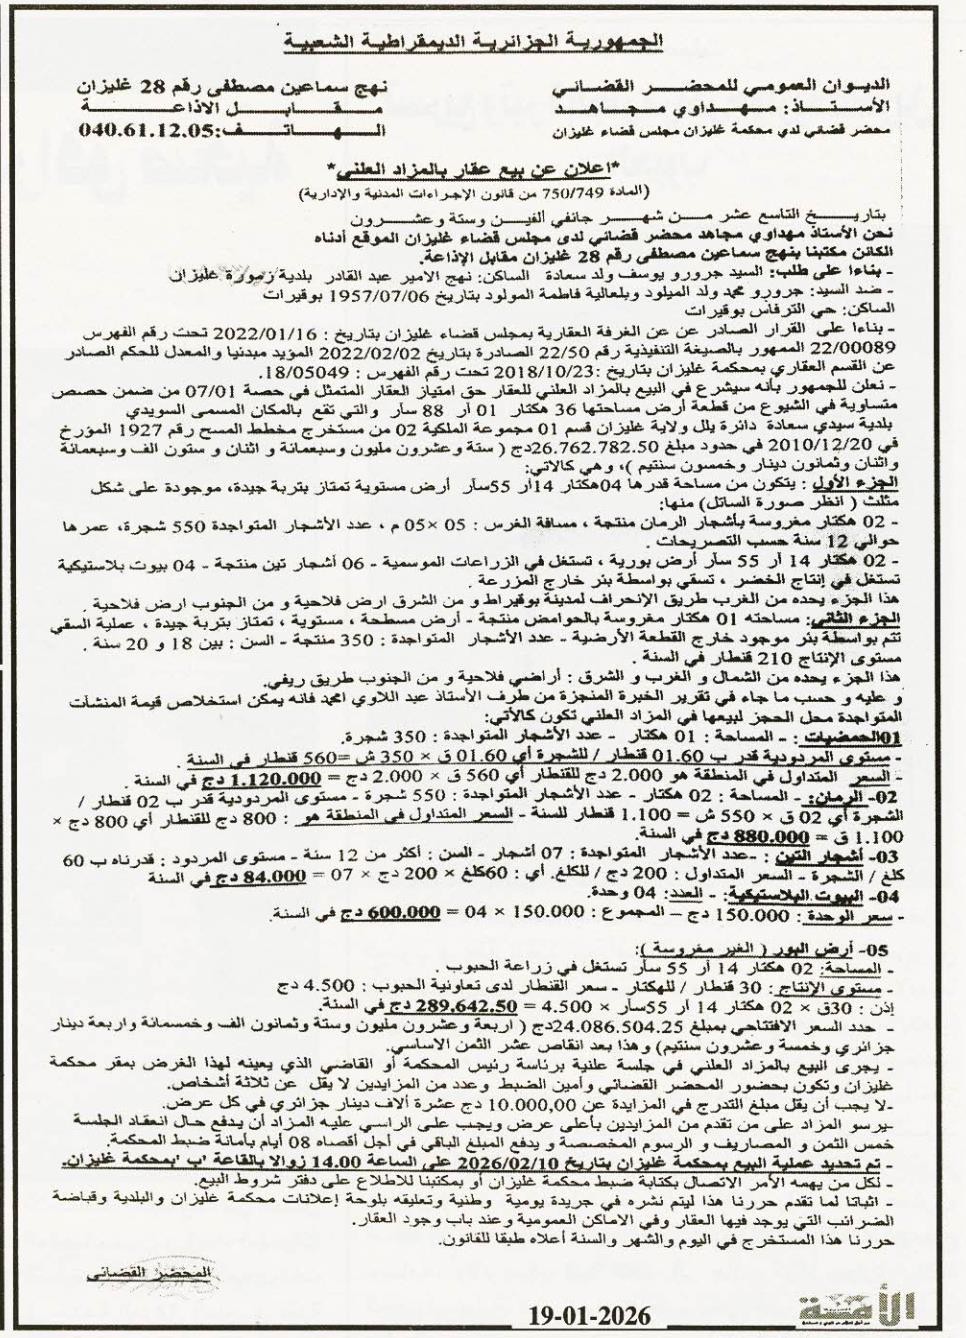 الجمهورية الجزائرية الديمقراطية الشعبية
الديوان العمومي للمحضر القضائي
الأستاذ: مهداوي مجاهد
محضر قضائي لدي محكمة غليزان مجلس قضاء غليزان
نهج سماعين مصطفى رقم 28 غليزان
مقابل الاذاعة
الهاتف: 040.61.12.05
*اعلان عن بيع عقار بالمزاد العلني*
(المادة 750/749 من قانون الإجراءات المدنية والإدارية)
بتاريخ التاسع عشر من شهر جانفي ألفين وستة وعشرون
نحن الأستاذ مهداوي مجاهد محضر قضائي لدى مجلس قضاء غليزان الموقع أدناه
الكائن مكتبنا بنهج سماعين مصطفى رقم 28 غليزان مقابل الإذاعة.
- بناءا على طلب: السيد جرورو يوسف ولد سعادة الساكن: نهج الامير عبد القادر بلدية زمورة غليزان
- ضد السيد: جرورو محمد ولد الميلود وبلعالية فاطمة المولود بتاريخ 1957/07/06 بوقيرات
الساكن: حي الترفاس بوقيرات
- بناءا على القرار الصادر عن عن الغرفة العقارية بمجلس قضاء غليزان بتاريخ : 2022/01/16 تحت رقم الفهرس
22/00089 الممهور بالصيغة التنفيذية رقم 22/50 الصادرة بتاريخ 2022/02/02 المؤيد مبدئيا والمعدل للحكم الصادر
عن القسم العقاري بمحكمة غليزان بتاريخ :2018/10/23 تحت رقم الفهرس : 18/05049.
- نعلن للجمهور بأنه سيشرع في البيع بالمزاد العلني للعقار حق امتياز العقار المتمثل في حصة 07/01 من ضمن حصص
متساوية في الشيوع من قطعة أرض مساحتها 36 هكتار 01 أر 88 سأر والتي تقع بالمكان المسمى السويدي
بلدية سيدي سعادة دائرة يلل ولاية غليزان قسم 01 مجموعة الملكية 02 من مستخرج مخطط المسح رقم 1927 المؤرخ
في 2010/12/20 في حدود مبلغ 26.762.782.50دج ( ستة وعشرون مليون وسبعمائة و اثنان و ستون الف وسبعمائة
واثنان وثمانون دينار وخمسون سنتيم )، وهي كالاتي:
الجزء الأول : يتكون من مساحة قدرها 04هكتار 14أر 55سأر أرض مستوية تمتاز بتربة جيدة، موجودة على شكل
مثلث ( انظر صورة الساتل) منها:
- 02 هكتار مغروسة بأشجار الرمان منتجة ، مسافة الغرس : 05 ×05 م ، عدد الأشجار المتواجدة 550 شجرة، عمرها
حوالي 12 سنة حسب التصريحات .
- 02 هكتار 14 أر 55 سأر أرض بورية ، تستغل في الزراعات الموسمية - 06 أشجار تين منتجة - 04 بيوت بلاستيكية
تستغل في إنتاج الخضر ، تسقي بواسطة بئر خارج المزرعة .
هذا الجزء يحده من الغرب طريق الإنحراف لمدينة بوقيراط و من الشرق ارض فلاحية و من الجنوب ارض فلاحية .
الجزء الثاني: مساحته 01 هكتار مغروسة بالحوامض منتجة - أرض مسطحة ، مستوية ، تمتاز بتربة جيدة ، عملية السقي
تتم بواسطة بئر موجود خارج القطعة الأرضية - عدد الأشجار المتواجدة : 350 منتجة - السن : بين 18 و 20 سنة .
مستوى الإنتاج 210 قنطار في السنة .
هذا الجزء يحده من الشمال و الغرب و الشرق : أراضي فلاحية و من الجنوب طريق ريفي.
و عليه و حسب ما جاء في تقرير الخبرة المنجزة من طرف الأستاذ عبد اللاوي امحمد فانه يمكن استخلاص قيمة المنشآت
المتواجدة محل الحجز لبيعها في المزاد العلني تكون كالأتي:
01الحمضيات : - المساحة : 01 هكتار - عدد الأشجار المتواجدة : 350 شجرة.
- مستوى المردودية قدر ب 01.60 قنطار / للشجرة أي 01.60 ق × 350 ش =560 قنطار في السنة .
- السعر المتداول في المنطقة هو 2.000 دج للقنطار أي 560 ق × 2.000 دج = 1.120.000 دج في السنة .
02- الرمان: - المساحة : 02 هكتار - عدد الأشجار المتواجدة : 550 شجرة - مستوى المردودية قدر ب 02 قنطار /
الشجرة أي 02 ق × 550 ش = 1.100 قنطار للسنة - السعر المتداول في المنطقة هو : 800 دج للقنطار أي 800 دج ×
1.100 ق = 880.000 دج في السنة.
03- أشجار التين : -عدد الأشجار المتواجدة : 07 أشجار - السن : أكثر من 12 سنة - مستوى المردود : قدرناه ب 60
كلغ / الشجرة - السعر المتداول : 200 دج / للكلغ. أي : 60كلغ × 200 دج × 07 = 84.000 دج في السنة
04- البيوت البلاستيكية: - العدد: 04 وحدة.
- سعر الوحدة : 150.000 دج – المجموع : 150.000 × 04 = 600.000 دج في السنة.
05- أرض البور ( الغير مغروسة ):
- المساحة: 02 هكتار 14 أر 55 سأر تستغل في زراعة الحبوب .
- مستوى الإنتاج : 30 قنطار / للهكتار - سعر القنطار لدى تعاونية الحبوب : 4.500 دج
إذن : 30ق × 02 هكتار 14 أر 55سأر × 4.500 = 289,642.50 دج في السنة.
- حدد السعر الافتتاحي بمبلغ 24.086.504.25دج ( اربعة وعشرون مليون وستة وثمانون الف وخمسمائة واربعة دينار
جزائري وخمسة وعشرون سنتيم) وهذا بعد انقاص عشر الثمن الاساسي.
- يجرى البيع بالمزاد العلني في جلسة علنية برئاسة رئيس المحكمة أو القاضي الذي يعينه لهذا الغرض بمقر محكمة
غليزان وتكون بحضور المحضر القضائي وأمين الضبط وعدد من المزايدين لا يقل عن ثلاثة أشخاص.
-لا يجب أن يقل مبلغ التدرج في المزايدة عن 10.000,00 دج عشرة ألاف دينار جزائري في كل عرض.
-يرسو المزاد على من تقدم من المزايدين بأعلى عرض ويجب على الراسي عليه المزاد أن يدفع حال انعقاد الجلسة
خمس الثمن و المصاريف و الرسوم المخصصة و يدفع المبلغ الباقي في أجل أقصاه 08 أيام بأمانة ضبط المحكمة.
- تم تحديد عملية البيع بمحكمة غليزان بتاريخ 2026/02/10 على الساعة 14.00 زوالا بالقاعة 'ب 'بمحكمة غليزان.
- لكل من يهمه الأمر الاتصال بكتابة ضبط محكمة غليزان أو بمكتبنا للاطلاع على دفتر شروط البيع.
- اثباتا لما تقدم حررنا هذا ليتم نشره في جريدة يومية وطنية وتعليقه بلوحة إعلانات محكمة غليزان والبلدية وقباضة
الضرائب التي يوجد فيها العقار وفي الاماكن العمومية وعند باب وجود العقار.
حررنا هذا المستخرج في اليوم والشهر والسنة أعلاه طبقا للقانون.
المحضر القضائي
19-01-2026
الأمة